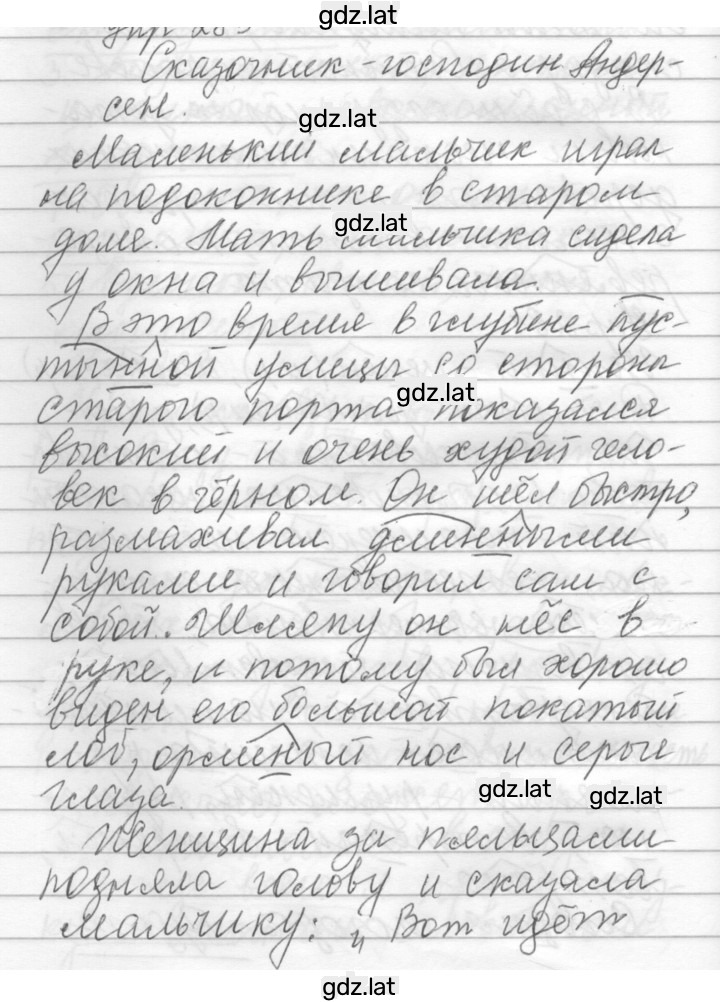 gdz.lat
упр 283
Сказочник - господин Андер-
сен.
gdz.lat
Маленький мальчик играл
на подоконнике в старом
gdz.lat
доме. Мать мальчика сидела
у окна и вышивала.
В это время в глубине пус-
тынной улицы со стороны
gdz.lat
старого порта показался
высокий и очень худой чело-
век в чёрном. Он шёл быстро,
размахивал длинными
руками и говорил сам с
собой. Шляпу он нёс в
руке, и потому был хорошо
виден его большой покатый
лоб, орлиный нос и серые
глаза.
gdz.lat
gdz.lat
Женщина за пяльцами
подняла голову и сказала
мальчику: „ Вот идёт
gdz.lat